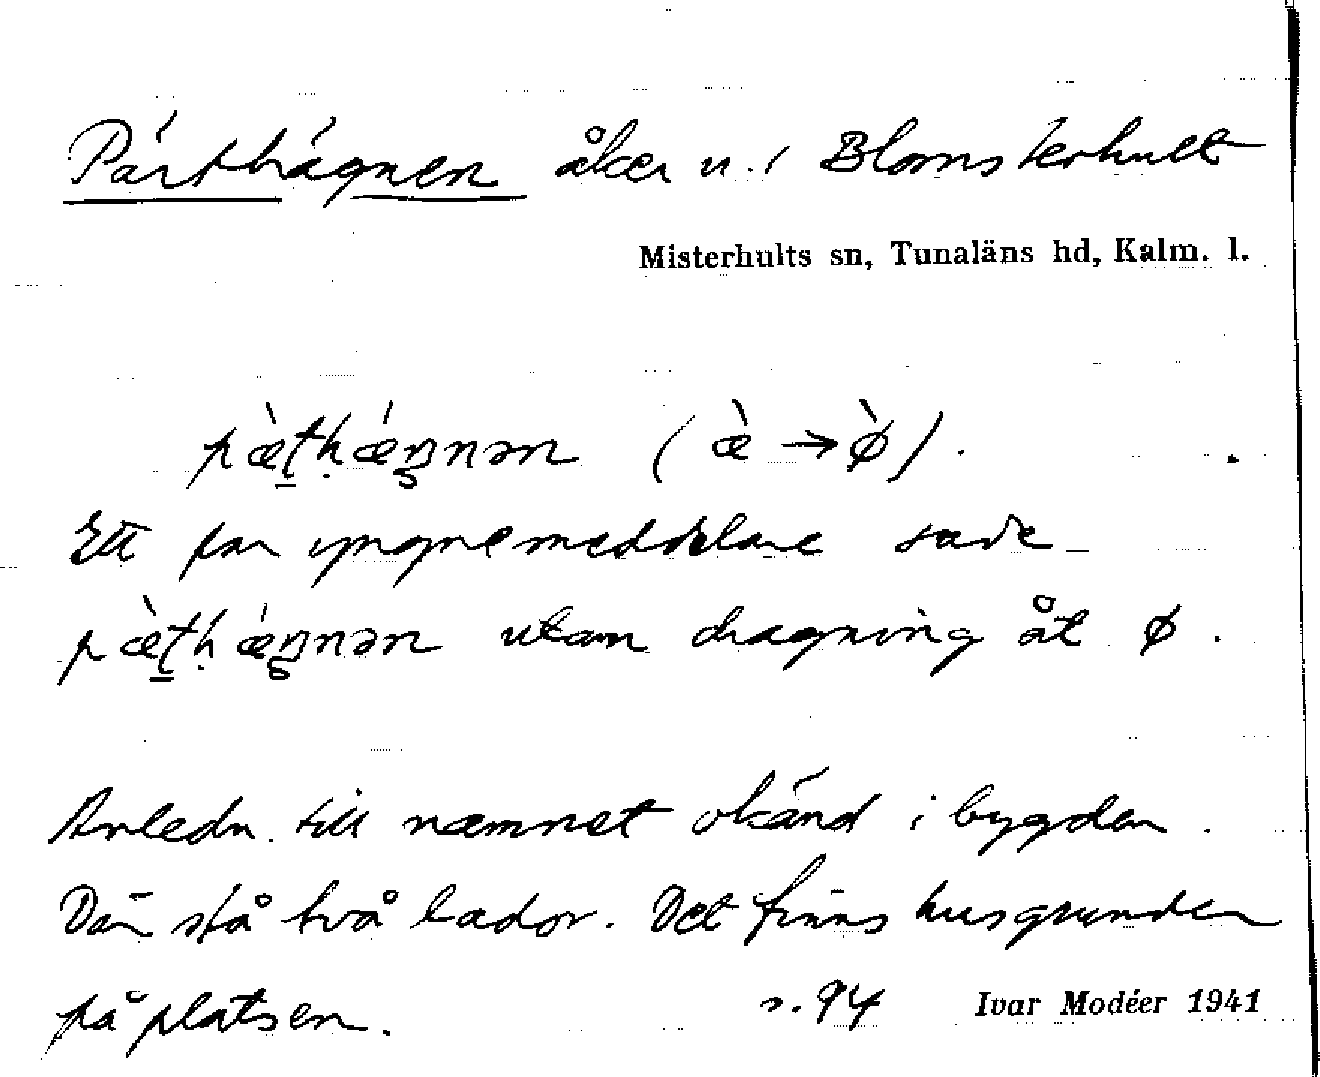 Pärthägnen åker u. i Blomsterhult
Misterhults sn, Tunaläns hd, Kalm. l.
pæ̀t̠ḥǽŋnən (æ̀ → ø̀).
Ett par yngre meddelare sade
pæ̀t̠ḥǽŋnən utan dragning åt ø.
Anledn. till namnet okänd i bygden.
Där stå två lador. Det finns husgrunder
på platsen. s. 94 Ivar Modéer 1941